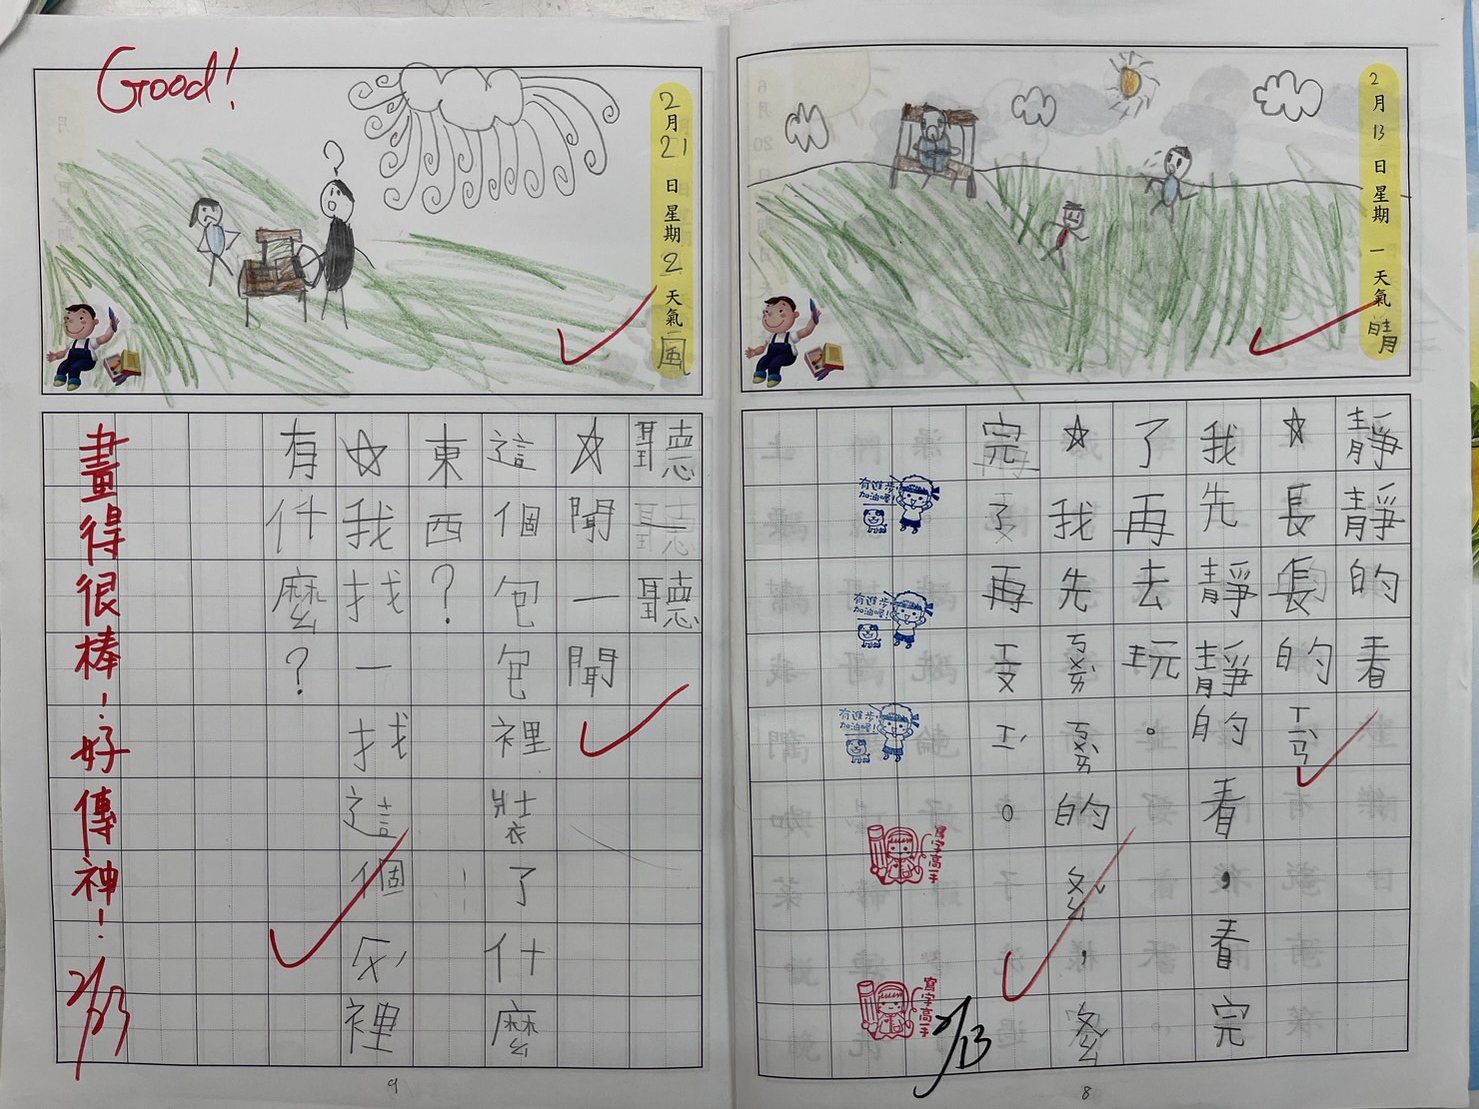 2月13日星期一天氣晴
靜靜的看
☆長長的
我先靜靜的看，看完
了再去玩。
☆我先的，
完了再。
有進步加油喔!
有進步加油喔!
有進步加油喔!
寫字高手
寫字高手
2/13
8
Good!
2月21日星期2天氣風
聽一聽
☆聞一聞
這個包包裡裝了什麼
東西？
☆我找一找這個裡
有什麼？
畫得很棒!好傳神!
2/23
9